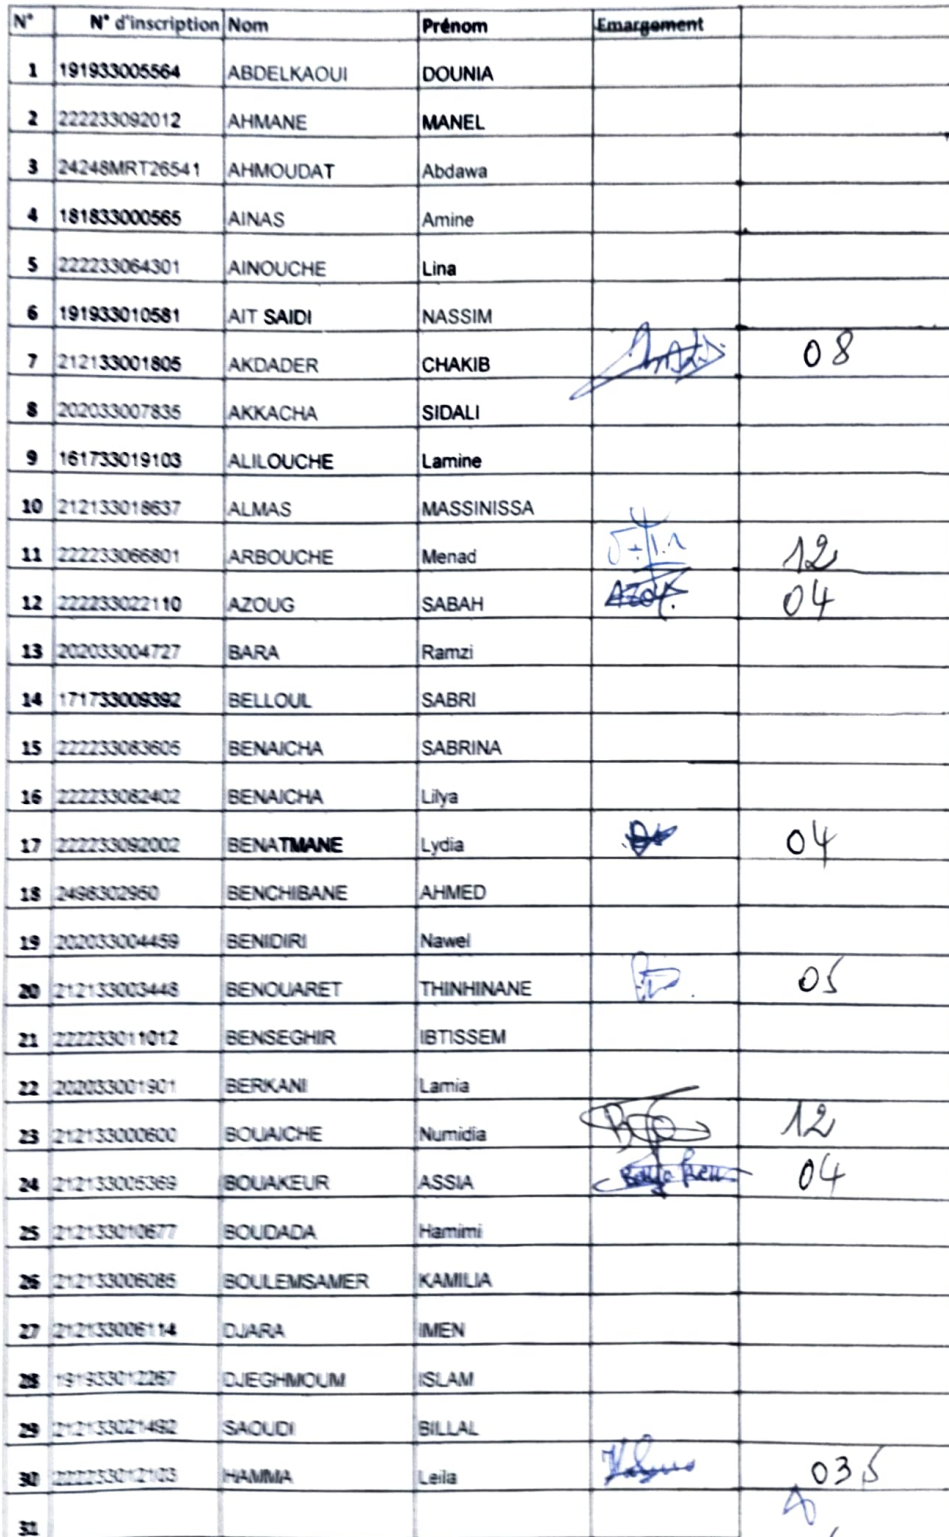 N° N° d'inscription Nom Prénom Emargement
1 191933005564 ABDELKAOUI DOUNIA
2 222233092012 AHMANE MANEL
3 24248MRT26541 AHMOUDAT Abdawa
4 181833000565 AINAS Amine
5 222233064301 AINOUCHE Lina
6 191933010581 AIT SAIDI NASSIM
7 212133001805 AKDADER CHAKIB 08
8 202033007835 AKKACHA SIDALI
9 161733019103 ALILOUCHE Lamine
10 212133018637 ALMAS MASSINISSA
11 222233066801 ARBOUCHE Menad 12
12 222233022110 AZOUG SABAH 04
13 202033004727 BARA Ramzi
14 171733009392 BELLOUL SABRI
15 222233083605 BENAICHA SABRINA
16 222233082402 BENAICHA Lilya
17 222233092002 BENATMANE Lydia 04
18 2498302950 BENCHIBANE AHMED
19 202033004459 BENIDIRI Nawel
20 212133003448 BENOUARET THINHINANE 05
21 222233011012 BENSEGHIR IBTISSEM
22 202033001901 BERKANI Lamia
23 212133000600 BOUAICHE Numidia 12
24 212133005369 BOUAKEUR ASSIA 04
25 212133010677 BOUDADA Hamimi
26 212133006085 BOULEMSAMER KAMILIA
27 212133006114 DJARA IMEN
28 191933012267 DJEGHMOUM ISLAM
29 212133021492 SAOUDI BILLAL
30 222233012103 HAMMA Leila 035
31